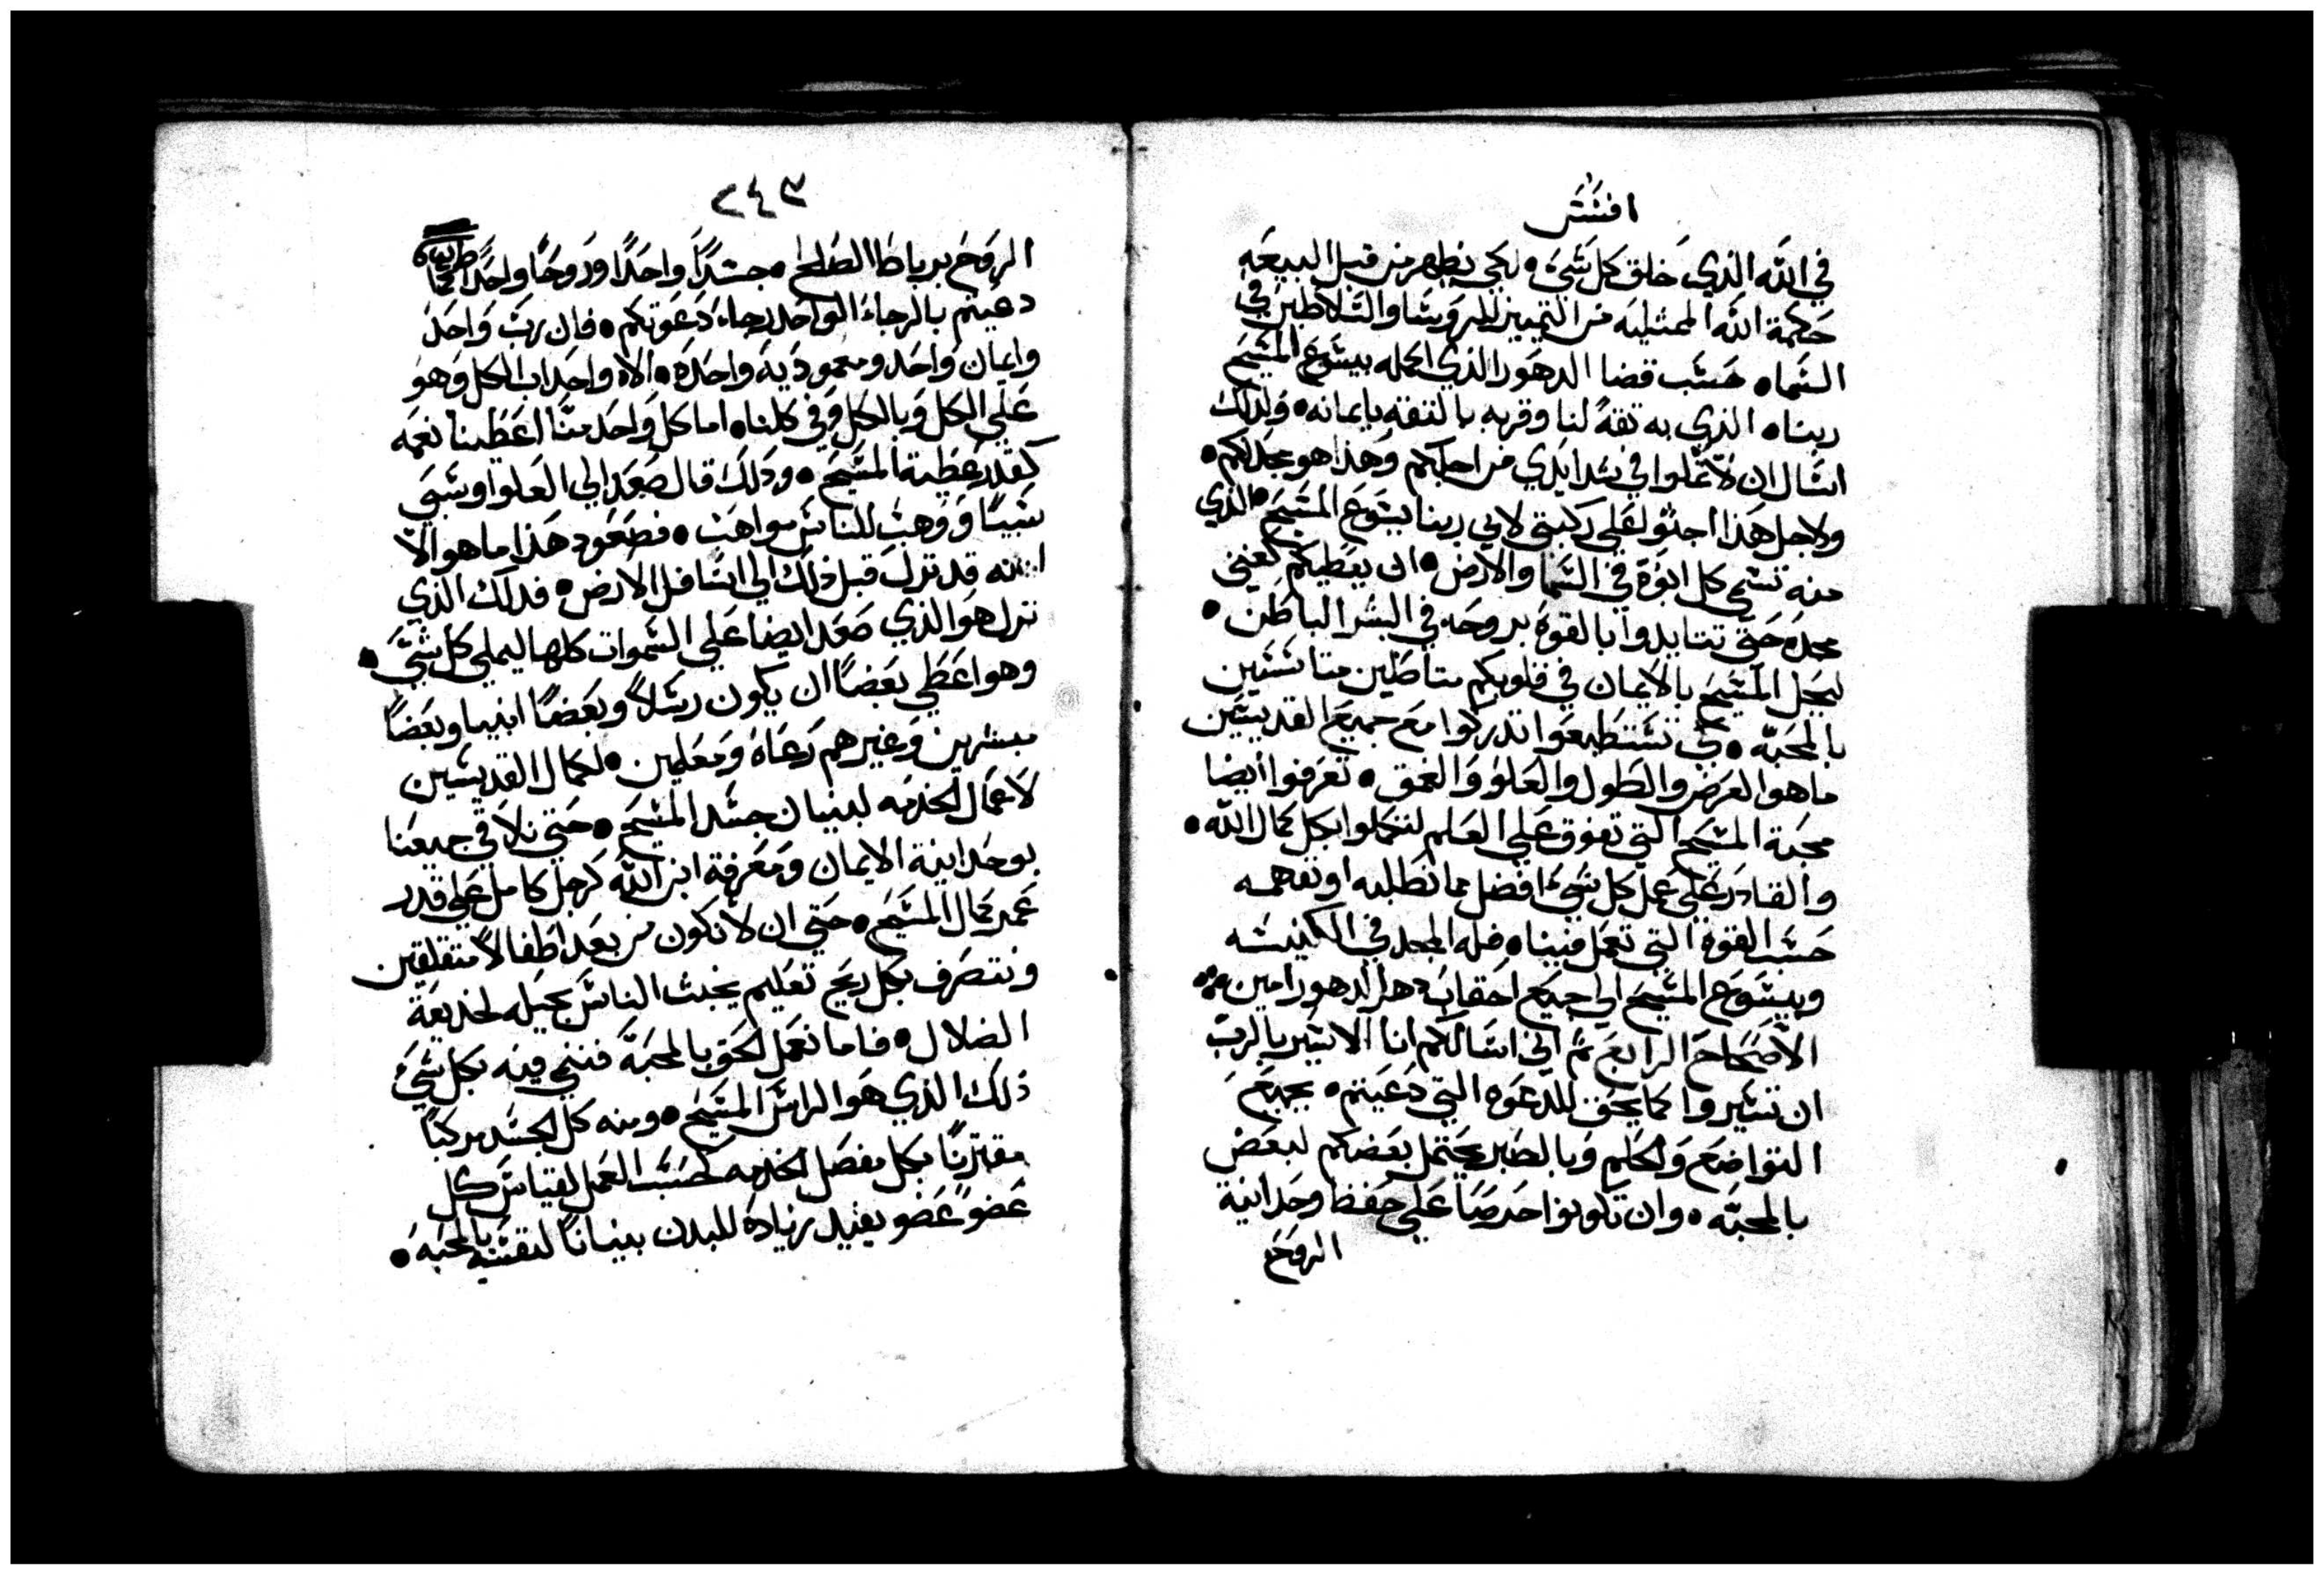 افسس
في الله الذي خلق كل شيء • لكي يظهر من قبل البيعه
حكمة الله الممتليه من التمييز للروسا والسلاطين في
السماء • حسب قضا الدهور الذي اكمله بيسوع المسيح
ربنا • الذي به ثقة لنا وقربه بالثقه بايمانه • ولذلك
اسال ان لا تملوا في شدايدي من اجلكم وهذا هو مجدكم •
ولاجل هذا اجثو علي ركبتي لابي ربنا يسوع المسيح • الذي
منه تسمي كل ابوة في السما والارض • ان يعطيكم كغني
مجده حتي تتايدوا بالقوة بروحه في البشر الباطن •
ليحل المسيح بالايمان في قلوبكم متاصلين متاسسين
بالمحبة • كي تستطيعوا تدركوا مع جميع القديسين
ما هو العرض والطول والعلو والعمق • تعرفوا ايضا
محبة المسيح التي تفوق علي العلم لتكملوا بكل كمال الله •
والقادر علي عمل كل شيء افضل مما نطلبه او نفهمه
حسب القوة التي تعمل فينا • فله المجد في الكنيسه
وبيسوع المسيح الي جميع احقاب دهر الدهور امين
الاصحاح الرابع ثم اني اسالكم انا الاسير بالرب
ان تسيروا كما يحق للدعوه التي دعيتم • بجميع
التواضع والحلم وبالصبر يحتمل بعضكم لبعض
بالمحبه • وان تكونوا حرصا علي حفظ وحدانية
الروح
٢٤٣
الروح برباط الصلح • جسدا واحدا وروحا واحدا كما
دعيتم بالرجاء الواحد رجاء دعوتكم • فان رب واحد
وايمان واحد ومعمودية واحدة • الاه واحد اب الكل وهو
علي الكل وبالكل وفي كلنا • اما كل واحد منا اعطينا نعمه
كقدر عطية المسيح • وذلك قال صعد الي العلو وسبي
سبيا ووهب للناس مواهب • فصعود هذا ما هو الا
انه قد نزل قبل ذلك الي اسافل الارض • فذلك الذي
نزل هو الذي صعد ايضا علي السموات كلها ليملي كل شي •
وهو اعطي بعضا ان يكون رسلا وبعضا انبيا وبعضا
مبشرين وغيرهم رعاة ومعلمين • لكمال القديسين
لاعمال الخدمه لبنيان جسد المسيح • حتي نلاقي جميعنا
بوحدانية الايمان ومعرفة ابن الله كرجل كامل علي قدر
عمر كمال المسيح • حتي ان لا نكون من بعد اطفالا متقلقين
ونتصرف بكل ريح تعليم بخبث الناس بحيله لخديعة
الضلال • فاما نعمل الحق بالمحبة فننمي فيه بكل شيء
ذلك الذي هو الراس المسيح • ومنه كل الجسد مركبا
مقترنا بكل مفصل الخدمه كحسب العمل لقياس كل
عضو عضو يفيد زيادة للبدن بنيانا لنفسه بالمحبه •